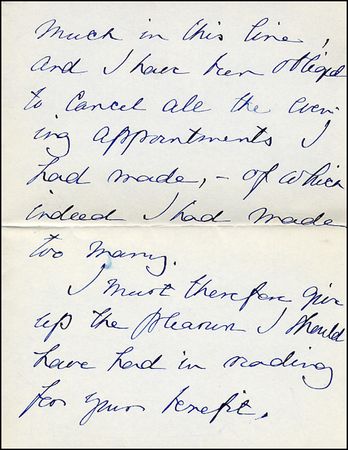 much in this line,
and I have been obliged
to cancel all the even-
ing appointments I
had made, – of which
indeed I had made
too many.
I must therefore give
up the pleasure I should
have had in reading
for your benefit.